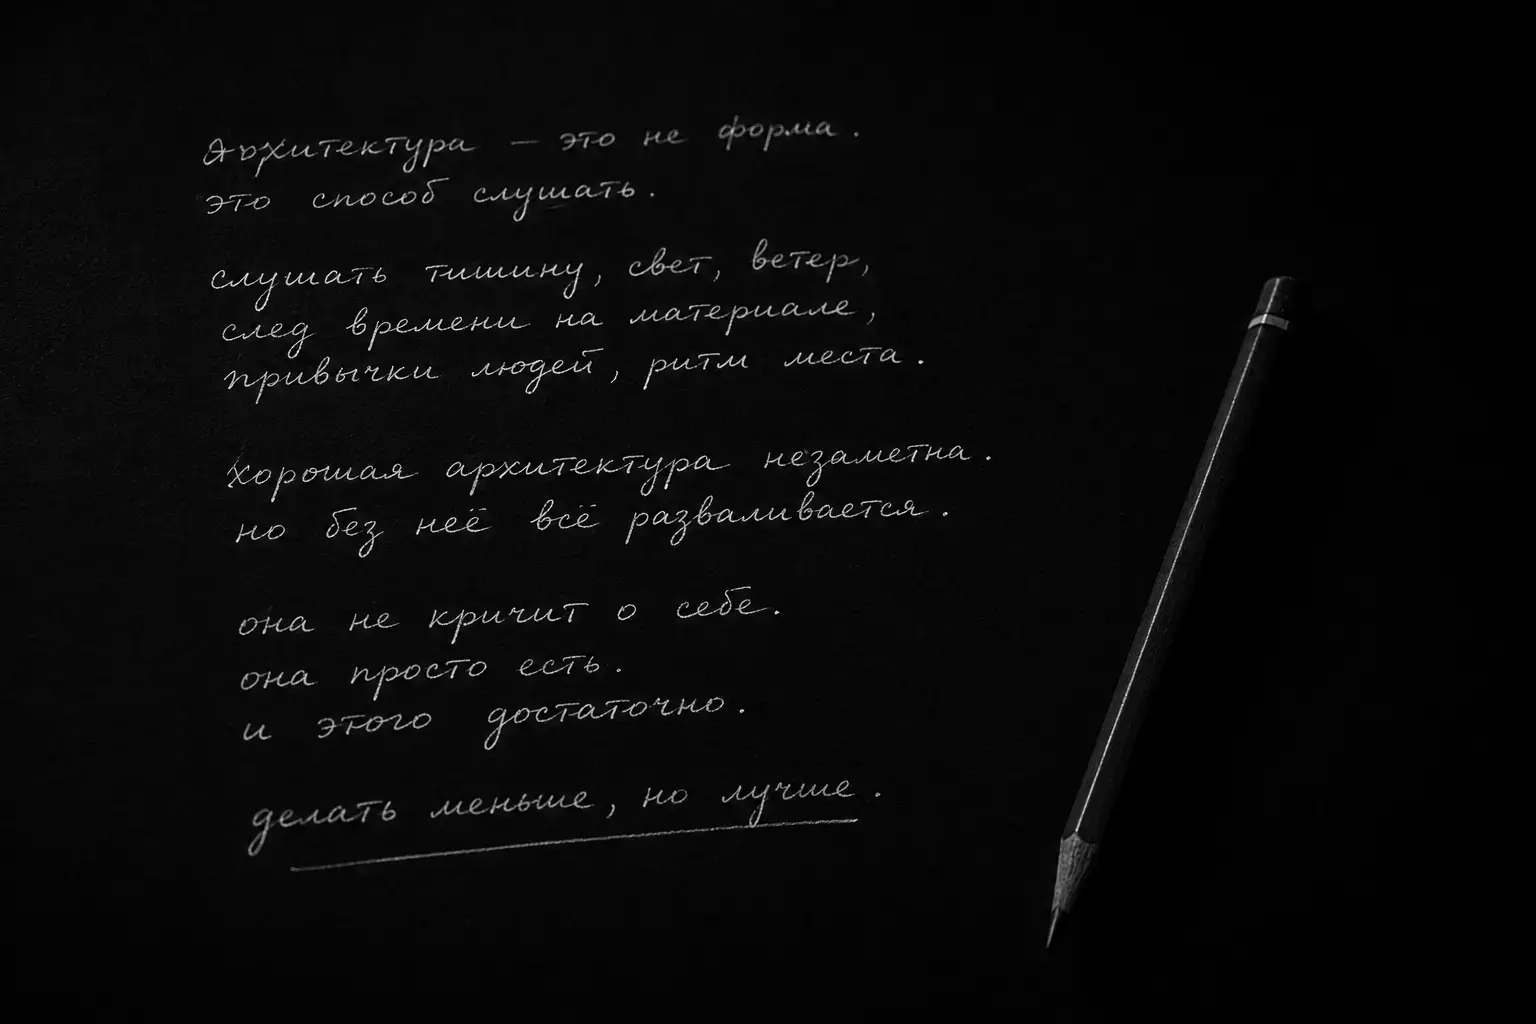 Архитектура — это не форма.
это способ слушать.
слушать тишину, свет, ветер,
след времени на материале,
привычки людей, ритм места.
хорошая архитектура незаметна.
но без неё всё разваливается.
она не кричит о себе.
она просто есть.
и этого достаточно.
делать меньше, но лучше.